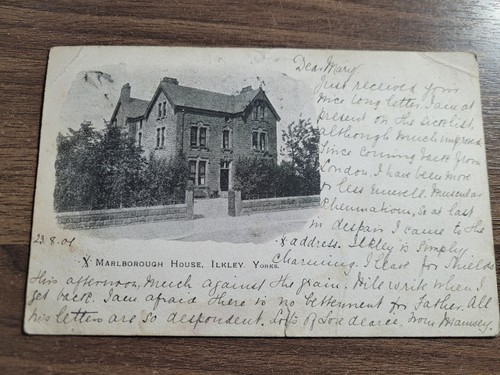 Dear Mary
Just received your
nice long letter. I am at
present on the sick list,
although much improved
since coming back from
London. I had been more
or less unwell. Muscular
Rheumatism, so at last
in despair I came to the
X address. Ilkley is simply
charming. I leave for Shields
this afternoon, much against the grain. Will write when I
get back. I am afraid there is no betterment for Father. All
his letters are so despondent. Lots of love dearie. From
23.8.01
X MARLBOROUGH HOUSE, ILKLEY. YORKS.